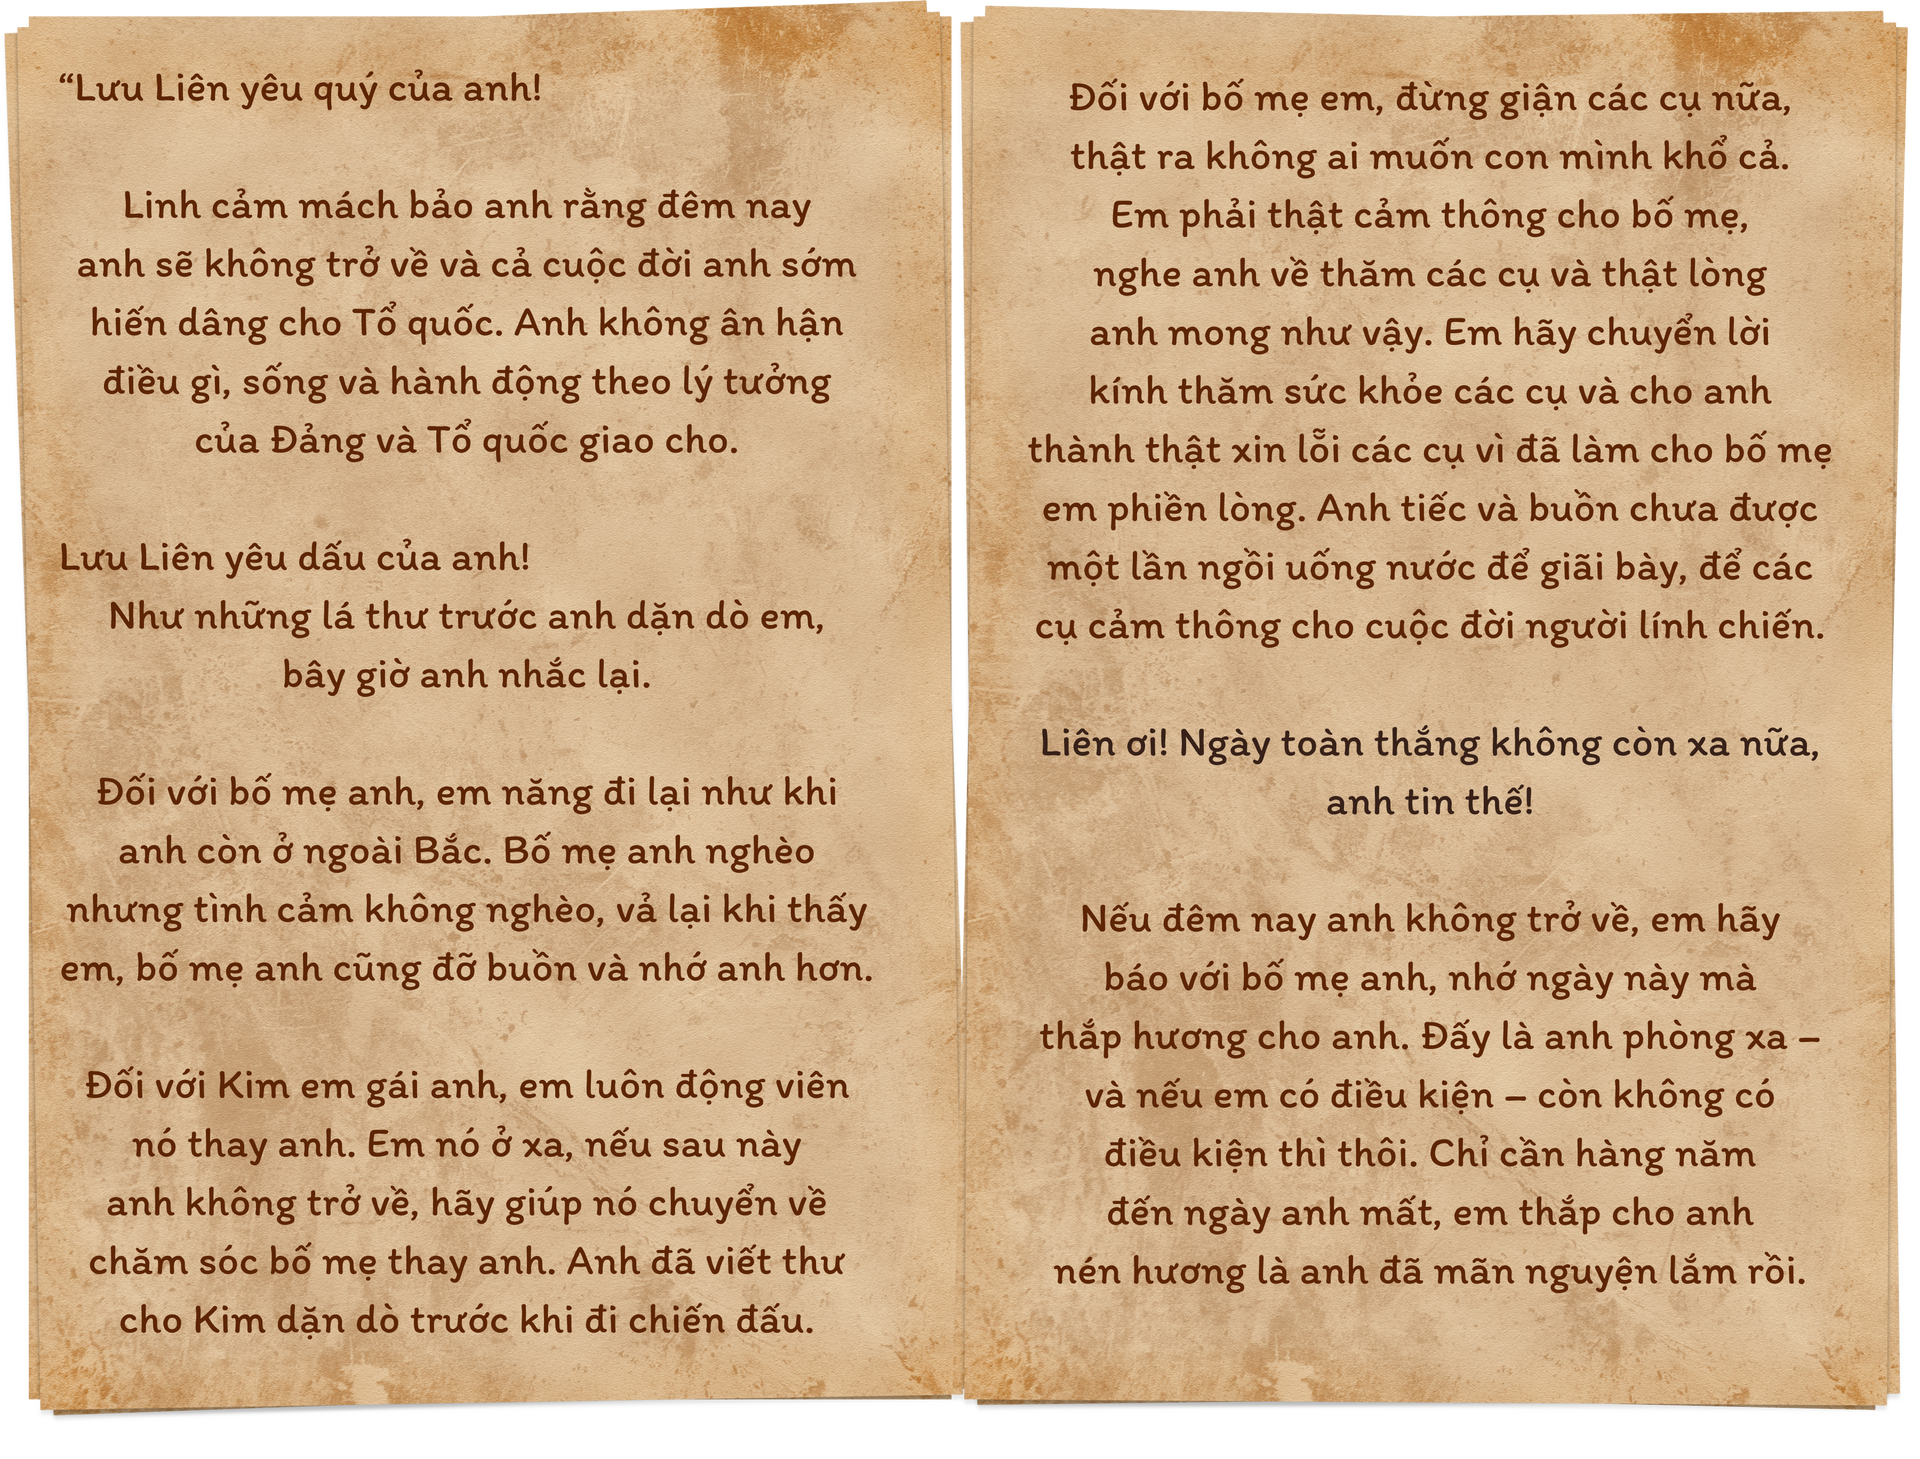 “Lưu Liên yêu quý của anh!
Linh cảm mách bảo anh rằng đêm nay
anh sẽ không trở về và cả cuộc đời anh sớm
hiến dâng cho Tổ quốc. Anh không ân hận
điều gì, sống và hành động theo lý tưởng
của Đảng và Tổ quốc giao cho.
Lưu Liên yêu dấu của anh!
Như những lá thư trước anh dặn dò em,
bây giờ anh nhắc lại.
Đối với bố mẹ anh, em năng đi lại như khi
anh còn ở ngoài Bắc. Bố mẹ anh nghèo
nhưng tình cảm không nghèo, vả lại khi thấy
em, bố mẹ anh cũng đỡ buồn và nhớ anh hơn.
Đối với Kim em gái anh, em luôn động viên
nó thay anh. Em nó ở xa, nếu sau này
anh không trở về, hãy giúp nó chuyển về
chăm sóc bố mẹ thay anh. Anh đã viết thư
cho Kim dặn dò trước khi đi chiến đấu.
Đối với bố mẹ em, đừng giận các cụ nữa,
thật ra không ai muốn con mình khổ cả.
Em phải thật cảm thông cho bố mẹ,
nghe anh về thăm các cụ và thật lòng
anh mong như vậy. Em hãy chuyển lời
kính thăm sức khỏe các cụ và cho anh
thành thật xin lỗi các cụ vì đã làm cho bố mẹ
em phiền lòng. Anh tiếc và buồn chưa được
một lần ngồi uống nước để giãi bày, để các
cụ cảm thông cho cuộc đời người lính chiến.
Liên ơi! Ngày toàn thắng không còn xa nữa,
anh tin thế!
Nếu đêm nay anh không trở về, em hãy
báo với bố mẹ anh, nhớ ngày này mà
thắp hương cho anh. Đấy là anh phòng xa –
và nếu em có điều kiện – còn không có
điều kiện thì thôi. Chỉ cần hàng năm
đến ngày anh mất, em thắp cho anh
nén hương là anh đã mãn nguyện lắm rồi.